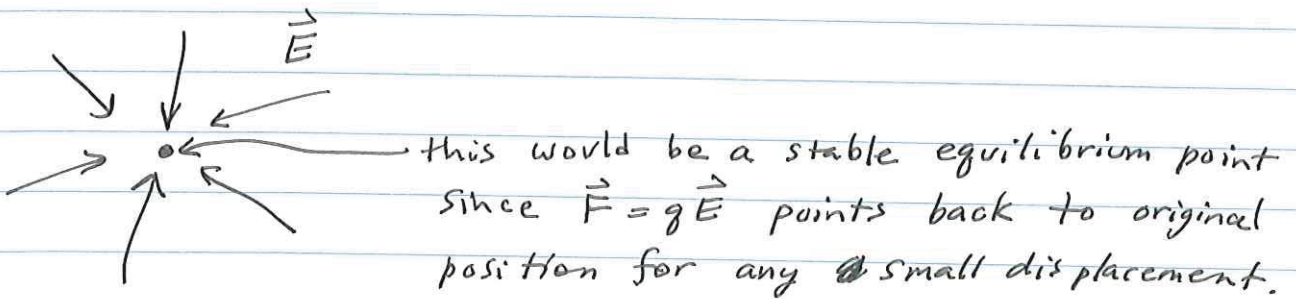 E⃗
this would be a stable equilibrium point
since F⃗ = qE⃗ points back to original
position for any small displacement.